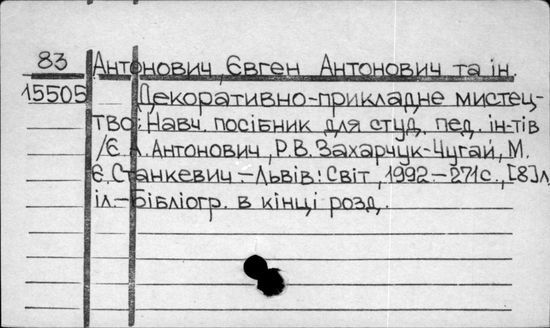 83 Антонович, Євген Антонович та ін.
15505 Декоративно-прикладне мистец-
тво: Навч. посібник для студ. пед. ін-тів
/Є.А.Антонович, Р.В.Захарчук-Чугай, М.
Є.Станкевич.-Львів: Світ, 1992.-271с.,[8]л.
іл.-Бібліогр. в кінці розд.